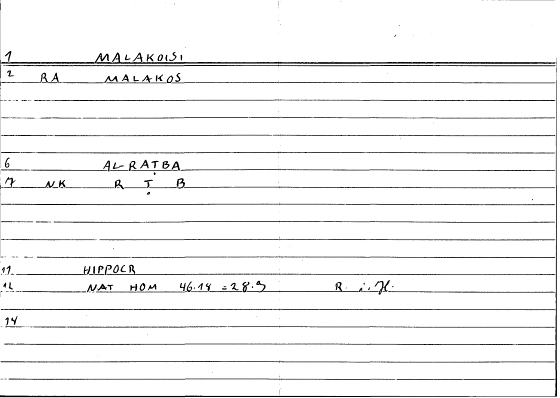 1 MALAKOISI
2 RA MALAKOS
6 AL-RAṬBA
7 NK R Ṭ B
11 HIPPOCR
12 NAT HOM 46.18 = 28.9 R ∴ H.
14